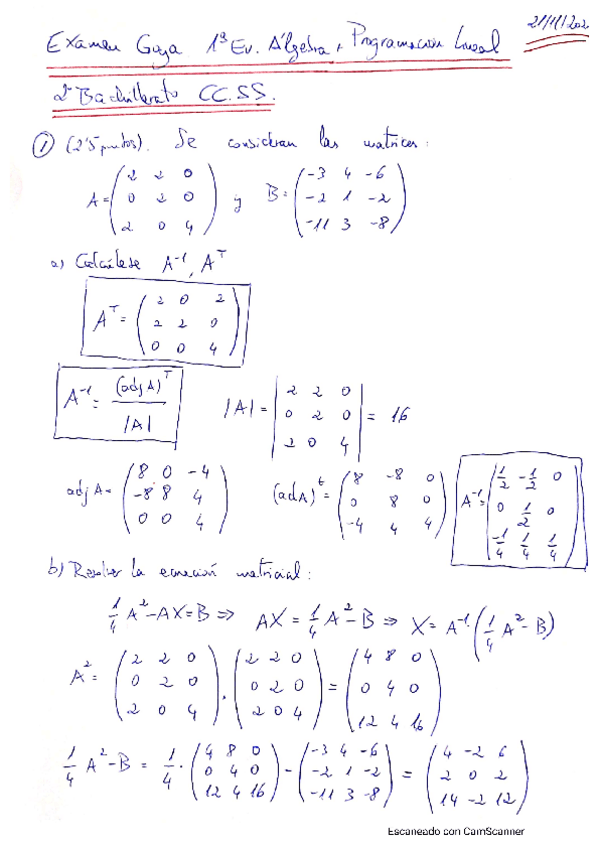 Examen Goya 1ª Ev. Álgebra + Programación Lineal 21/11/202
2º Bachillerato CC.SS.
① (2'5 puntos). Se consideran las matrices:
A = ( 2 2 0 ; 0 2 0 ; 2 0 4 ) y B = ( -3 4 -6 ; -2 1 -2 ; -11 3 -8 )
a) Calcúlese A⁻¹, Aᵀ
Aᵀ = ( 2 0 2 ; 2 2 0 ; 0 0 4 )
A⁻¹ = (adj A)ᵀ / |A| |A| = | 2 2 0 ; 0 2 0 ; 2 0 4 | = 16
adj A = ( 8 0 -4 ; -8 8 4 ; 0 0 4 ) (adA)ᵗ = ( 8 -8 0 ; 0 8 0 ; -4 4 4 ) A⁻¹ = ( 1/2 -1/2 0 ; 0 1/2 0 ; -1/4 1/4 1/4 )
b) Resolver la ecuación matricial:
1/4 A² - AX = B ⇒ AX = 1/4 A² - B ⇒ X = A⁻¹·(1/4 A² - B)
A² = ( 2 2 0 ; 0 2 0 ; 2 0 4 ) · ( 2 2 0 ; 0 2 0 ; 2 0 4 ) = ( 4 8 0 ; 0 4 0 ; 12 4 16 )
1/4 A² - B = 1/4 · ( 4 8 0 ; 0 4 0 ; 12 4 16 ) - ( -3 4 -6 ; -2 1 -2 ; -11 3 -8 ) = ( 4 -2 6 ; 2 0 2 ; 14 -2 12 )
Escaneado con CamScanner